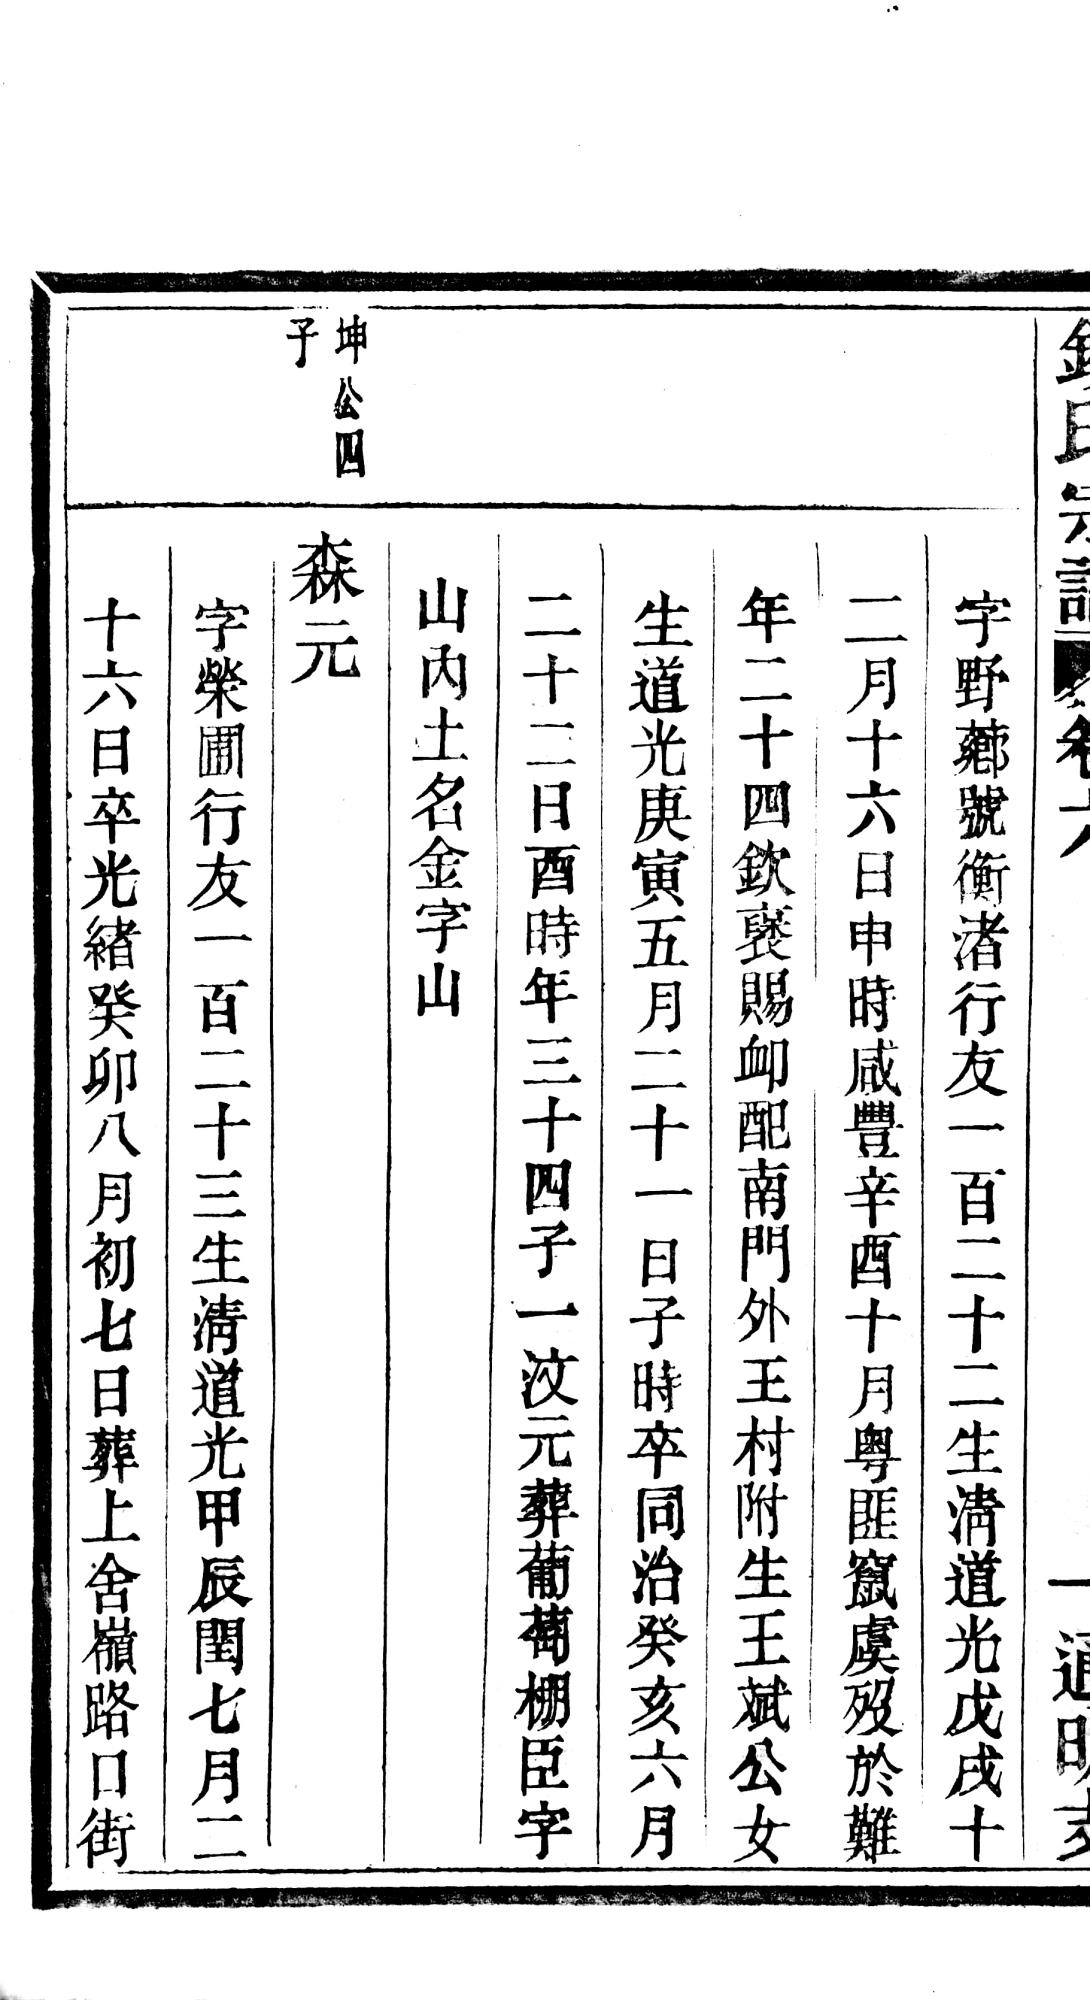 氏宗譜 卷六 一 通明支
字野薌號衡渚行友一百二十二生清道光戊戌十
二月十六日申時咸豐辛酉十月粤匪竄虞歿於難
年二十四欽褒賜卹配南門外王村附生王斌公女
生道光庚寅五月二十一日子時卒同治癸亥六月
二十二日酉時年三十四子一汶元葬葡萄棚臣字
山內土名金字山
坤公四
子
森元
字榮圃行友一百二十三生清道光甲辰閏七月二
十六日卒光緒癸卯八月初七日葬上舍嶺路口街